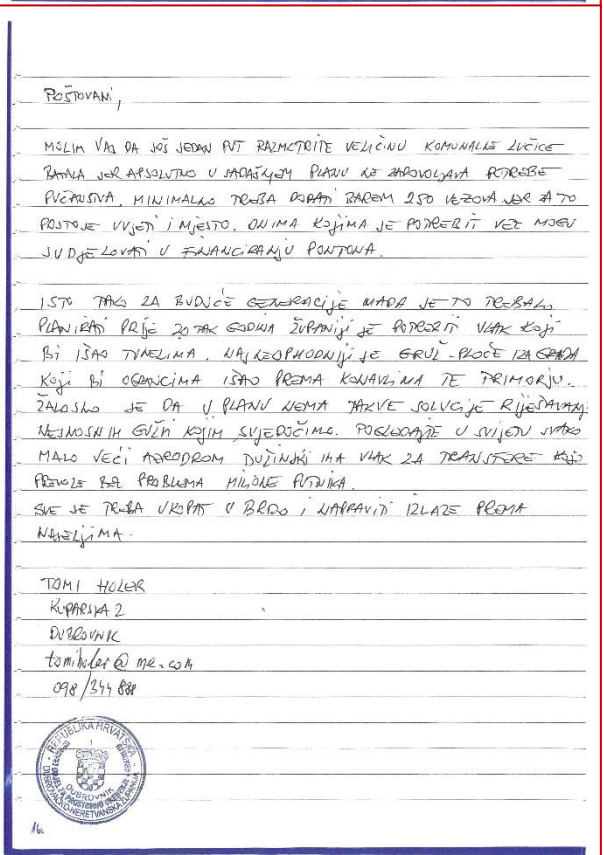 POŠTOVANI,
MOLIM VAS DA JOŠ JEDAN PUT RAZMOTRITE VELIČINU KOMUNALNE LUČICE
BATALA JER APSOLUTNO U SADAŠNJEM PLANU NE ZADOVOLJAVA POTREBE
PUČANSTVA. MINIMALNO TREBA DODATI BAREM 250 VEZOVA JER ZA TO
POSTOJE UVJETI I MJESTO. ONIMA KOJIMA JE POTREBIT VEZ MOGU
SUDJELOVATI U FINANCIRANJU PONTONA.
ISTO TAKO ZA BUDUĆE GENERACIJE MADA JE TO TREBALO
PLANIRATI PRIJE 20 TAK GODINA ŽUPANIJI JE POTREBIT VLAK KOJI
BI IŠAO TUNELIMA. NAJNEOPHODNIJI JE GRUŽ-PLOČE IZA GRADA
KOJI BI OGRANCIMA IŠAO PREMA KONAVLIMA TE PRIMORJU.
ŽALOSNO JE DA U PLANU NEMA TAKVE SOLUCIJE RIJEŠAVANJ
NESNOSNIH GUŽVI KOJIM SVJEDOČIMO. POGLEDAJTE U SVIJETU SVAKO
MALO VEĆI AERODROM DUŽINSKI IMA VLAK ZA TRANSFERE KOJI
PREVOZE BEZ PROBLEMA MILIONE PUTNIKA.
SVE SE TREBA UKOPAT U BRDO I NAPRAVITI IZLAZE PREMA
NASELJIMA.
TOMI HOLER
KUPARSKA 2
DUBROVNIK
tomiholer@me.com
098/344 888
REPUBLIKA HRVATSKA
DUBROVAČKO-NERETVANSKA ŽUPANIJA
DUBROVNIK
16.